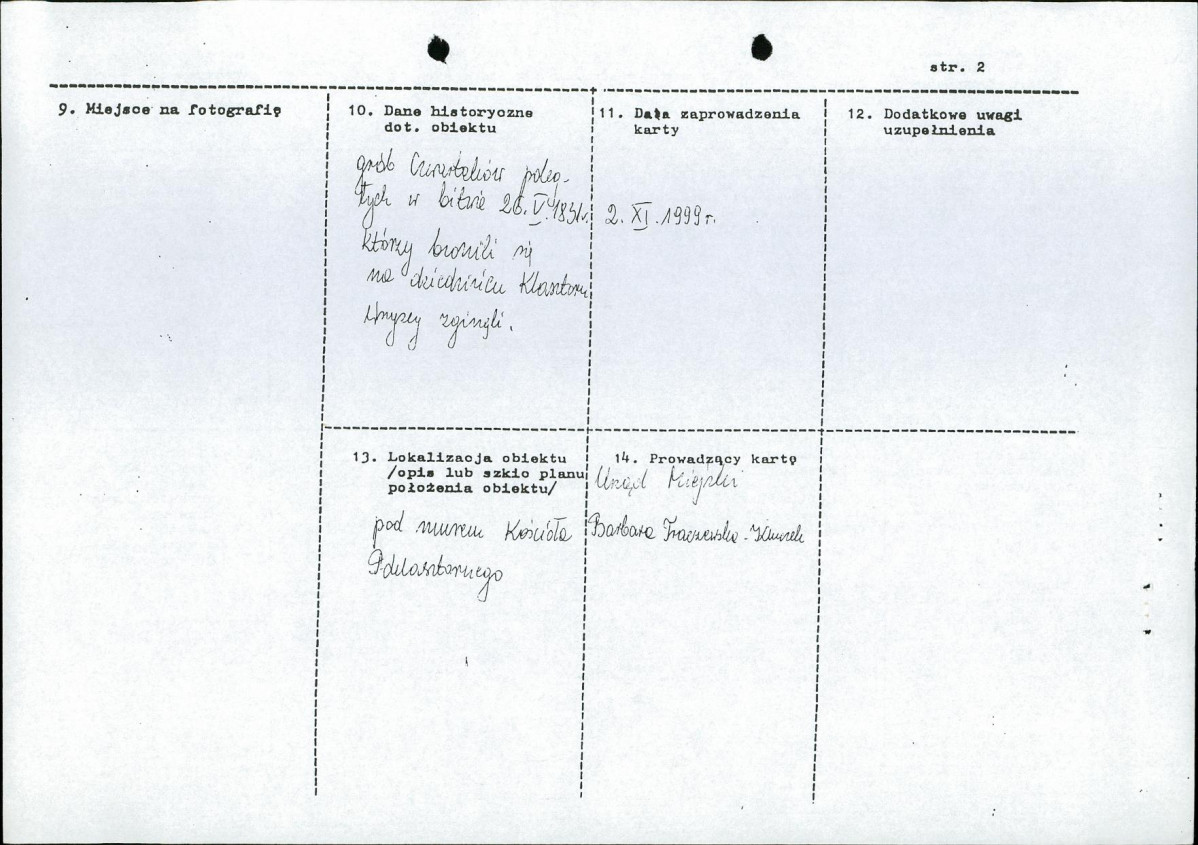 str. 2
9. Miejsce na fotografię
10. Dane historyczne
dot. obiektu
grób Czwartaków poleg-
łych w bitwie 26.V.1831r.
którzy bronili się
na dziedzińcu Klasztoru
Wszyscy zginęli.
11. Data zaprowadzenia
karty
2. XI. 1999r.
12. Dodatkowe uwagi
uzupełnienia
13. Lokalizacja obiektu
/opis lub szkic planu
położenia obiektu/
pod murem Kościoła
14. Prowadzący kartę
Urząd Miejski
Barbara